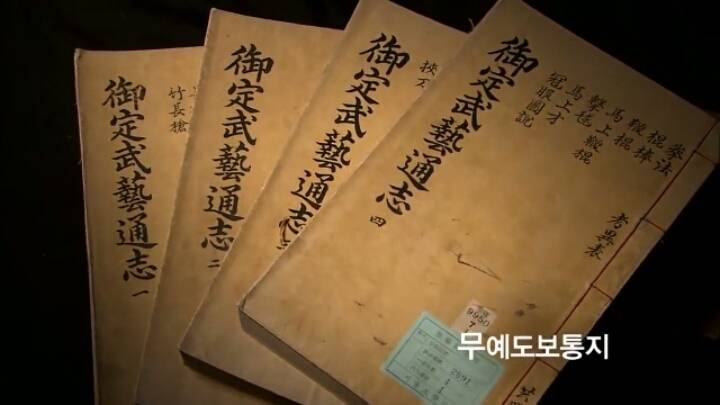 御定武藝通志 一
竹長槍
御定武藝通志 二
御定武藝通志
挾刀
御定武藝通志 四
拳法
棍棒
鞭棍
馬上鞭棍
擊毬
馬上才
冠服圖說
考異表
共四
9950
7
2891
무예도보통지